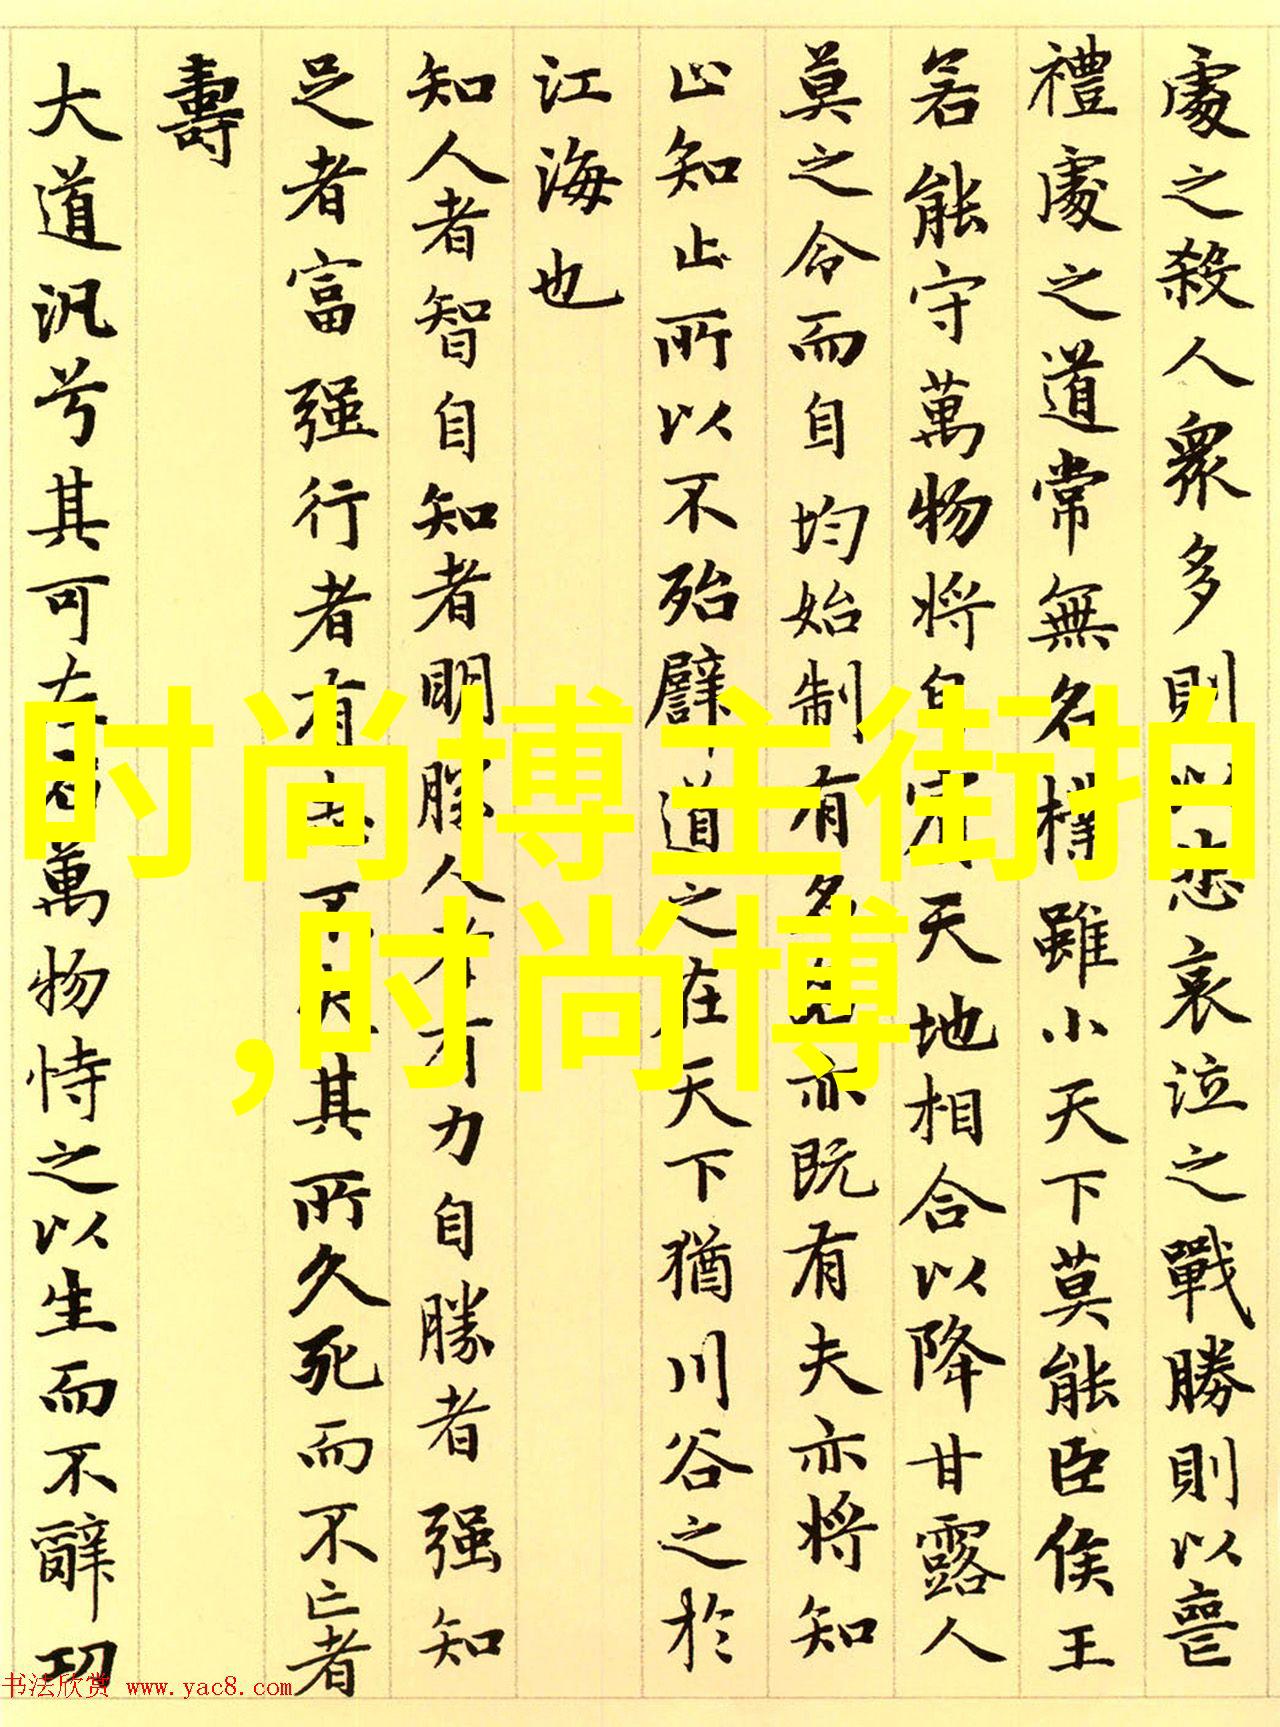 處之殺人衆多則以悲哀泣之戰勝則以喪
禮處之道常無名樸雖小天下莫能臣侯王
若能守萬物將自賓天地相合以降甘露人
莫之令而自均始制有名名亦既有夫亦將知
止知止所以不殆譬道之在天下猶川谷之於
江海也
知人者智自知者明勝人者有力自勝者强知
足者富强行者有志不失其所久死而不亡者
壽
大道汎兮其可左右萬物恃之以生而不辭功
时尚博主街拍
,时尚博
书法欣赏 www.yac8.com